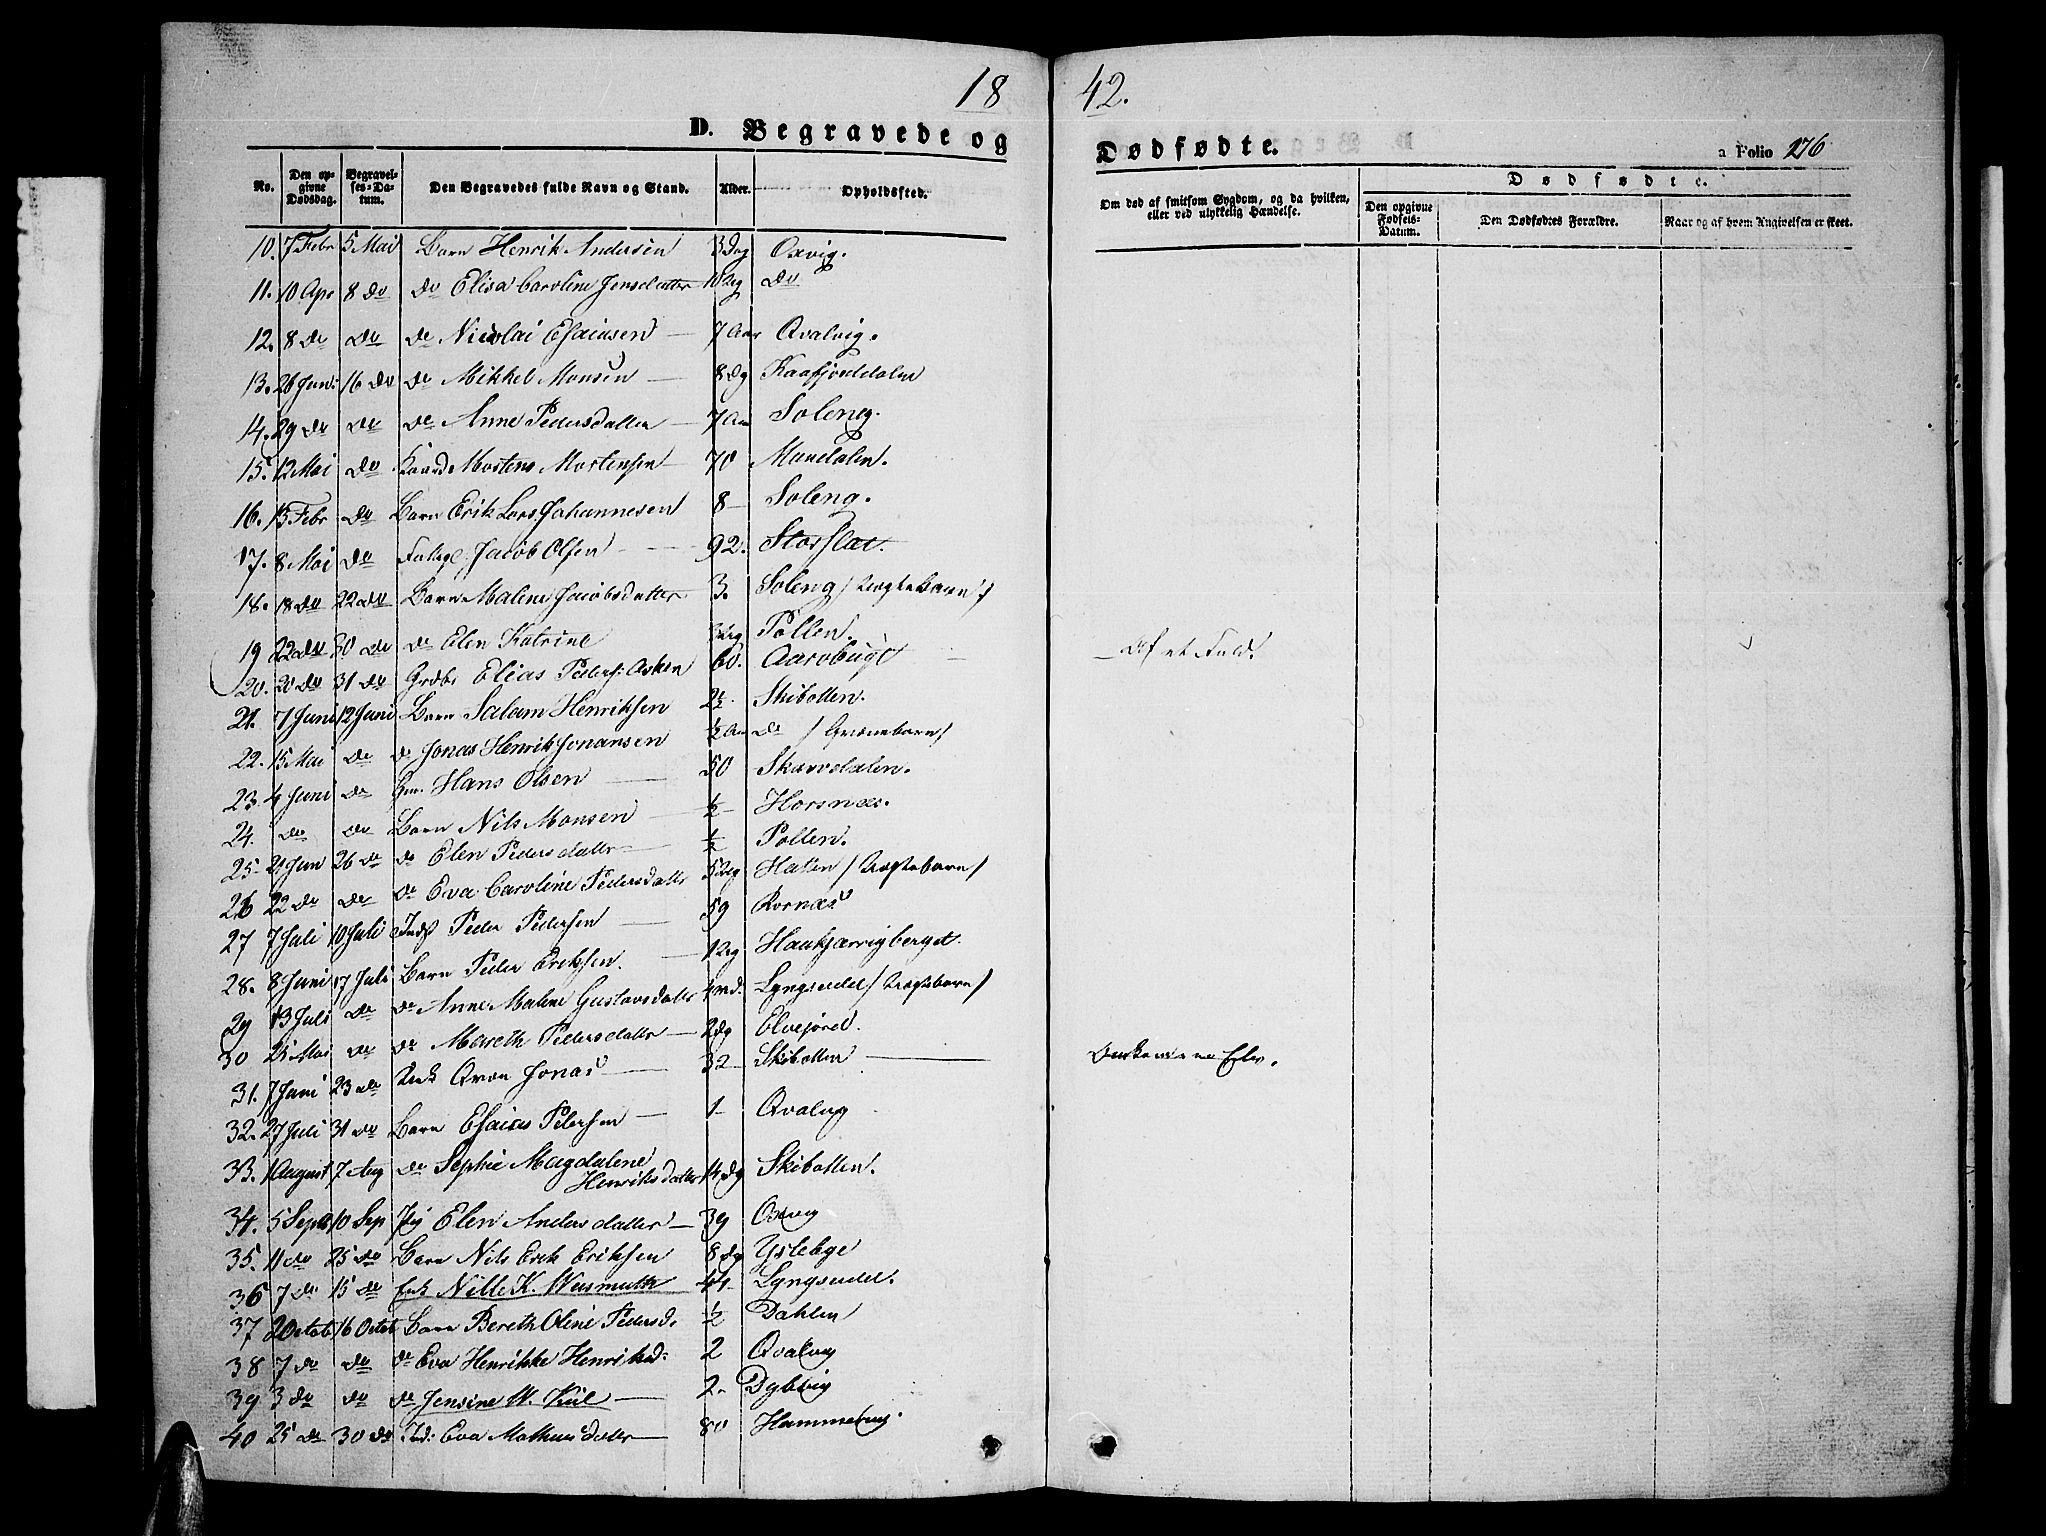 18 42.
D. Begravede og Dødfødte. a Folio 276
No. Den opgivne Dødsdag. Begravelses-Datum. Den Begravedes fulde Navn og Stand. Alder. Opholdssted. Om død af smitsom Sygdom, og da hvilken, eller ved ulykkelig Hændelse. Dødfødte. Den opgivne Fødsels-Datum. Den Dødfødtes Forældre. Naar og af hvem Angivelsen er skeet.
10. 7 Febr 5 Mai Barn Henrik Andersen 3 Dag Oxvig.
11. 10 Apr 8 do do Elisa Caroline Jensdatter do
12. 8 do do do Nicolai Esaiasen 7 Aar Qvalvig.
13. 26 Juni 16 do do Mikkel Monsen 8 dg Kaafjorddalen
14. 29 do do do Anne Pedersdatter 7 Aar Soleng.
15. 12 Mai do Mortens Mortensen 70 Mandalen.
16. 15 Febr do Barn Erik Lars Johannesen 8 Soleng.
17. 8 Mai do Jacob Olsen 92. Storslat.
18. 18 do 22 do Barn Malene Jacobsdatter 3. Soleng /: Uægtebarn :/
19 22 do 30 do do Elen Katrine Pollen.
20. 20 do 31 do Elias Peders: Asken 60. Aarobugt Af et Fald.
21. 7 Juni 12 Juni Barn Salam Henriksen 2½ Skibotten.
22. 15 Mai do do Jonas Henrik Jonansen ½ Aar do
23. 4 Juni do Hans Olsen 50 Skarvdalen.
24. do do Barn Nils Monsen ½ Horsnæs.
25. 21 Jun 26 do do Elen Pedersdatter ½ Pollen.
26 22 do do do Eva Caroline Pedersdatter Hatten / Uægtebarn /
27 7 Juli 10 Juli Inds Peder Pedersen 59 Rornæs
28. 8 Juni 17 Juli Barn Peder Eriksen.
29 13 Juli do do Anne Malene Gustavsdatter Lyngseidet / Uægtebarn /
30 25 Mai do do Mareth Pedersdatter 2 dg Elvejord.
31. 7 Juni 23 do Jonas 32 Skibotten Elv.
32. 27 Juli 31 do Barn Esaias Petersen 1 Qvalvig
33. 1 August 7 Aug do Sophie Magdalene Henriksdatter 14 dg Skibotten.
34. 5 Septb 10 Sep Pig Elen Andersdatter 39 Oxvig
35. 11 do 25 do Barn Nils Erik Eriksen 8 dg Ystebye
36 7 do 15 do Enk Nille K. Wasmuth 44 Lyngseidet.
37 2 Octob 16 Octob Barn Bereth Oline Pedersd. ½ Dahlen
38 7 do do do Eva Henrikke Henriksd: 2 Qvalvig
39 3 do do do Jensine W. Kiil 2. Dybvig
40 25 do 30 do Ind: Eva Mathisdatter 80 Hammebug.